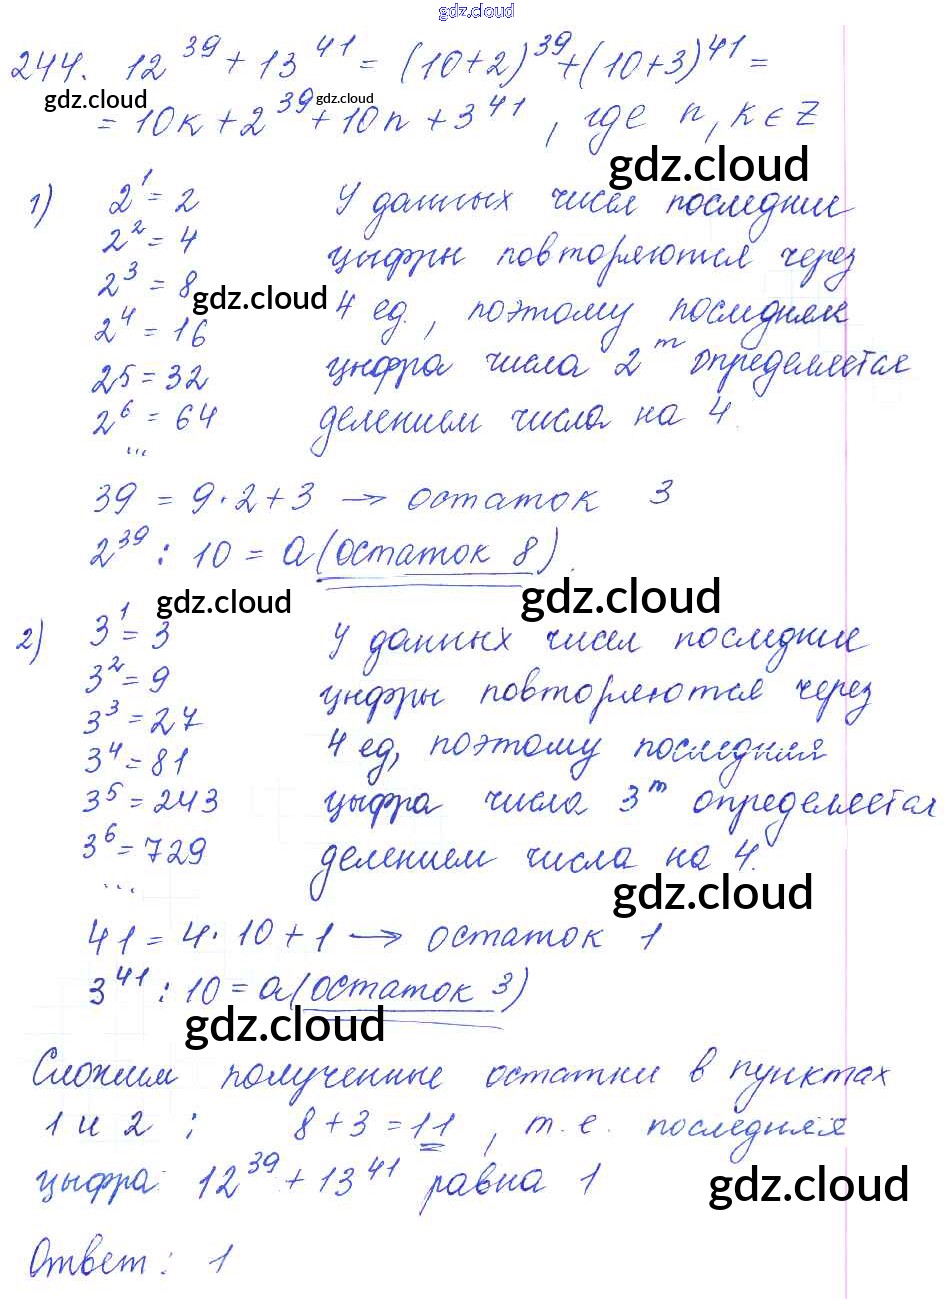 gdz.cloud
244. 12^39 + 13^41 = (10+2)^39 + (10+3)^41 =
gdz.cloud gdz.cloud
= 10k + 2^39 + 10n + 3^41, где n, k ∈ Z
gdz.cloud
1) 2^1 = 2 У данных чисел последние
2^2 = 4 цифры повторяются через
2^3 = 8 gdz.cloud 4 ед., поэтому последняя
2^4 = 16
2^5 = 32 цифра числа 2^m определяется
2^6 = 64 делением числа на 4.
...
39 = 9·2+3 → остаток 3
2^39 : 10 = a (остаток 8).
gdz.cloud gdz.cloud
2) 3^1 = 3 У данных чисел последние
3^2 = 9 цифры повторяются через
3^3 = 27
3^4 = 81 4 ед, поэтому последняя
3^5 = 243 цифра числа 3^m определяется
3^6 = 729 делением числа на 4.
... gdz.cloud
41 = 4·10+1 → остаток 1
3^41 : 10 = a (остаток 3)
gdz.cloud
Сложим полученные остатки в пунктах
1 и 2; 8+3=11, т.е. последняя
цифра 12^39 + 13^41 равна 1
gdz.cloud
Ответ: 1